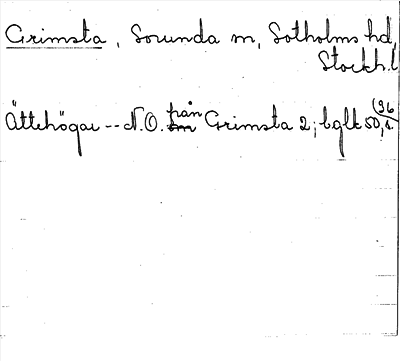 Grimsta, Sorunda sn, Sotholms hd,
Stockh. l
Ättehögar -- N.O. från Grimsta 2; bglt 50,